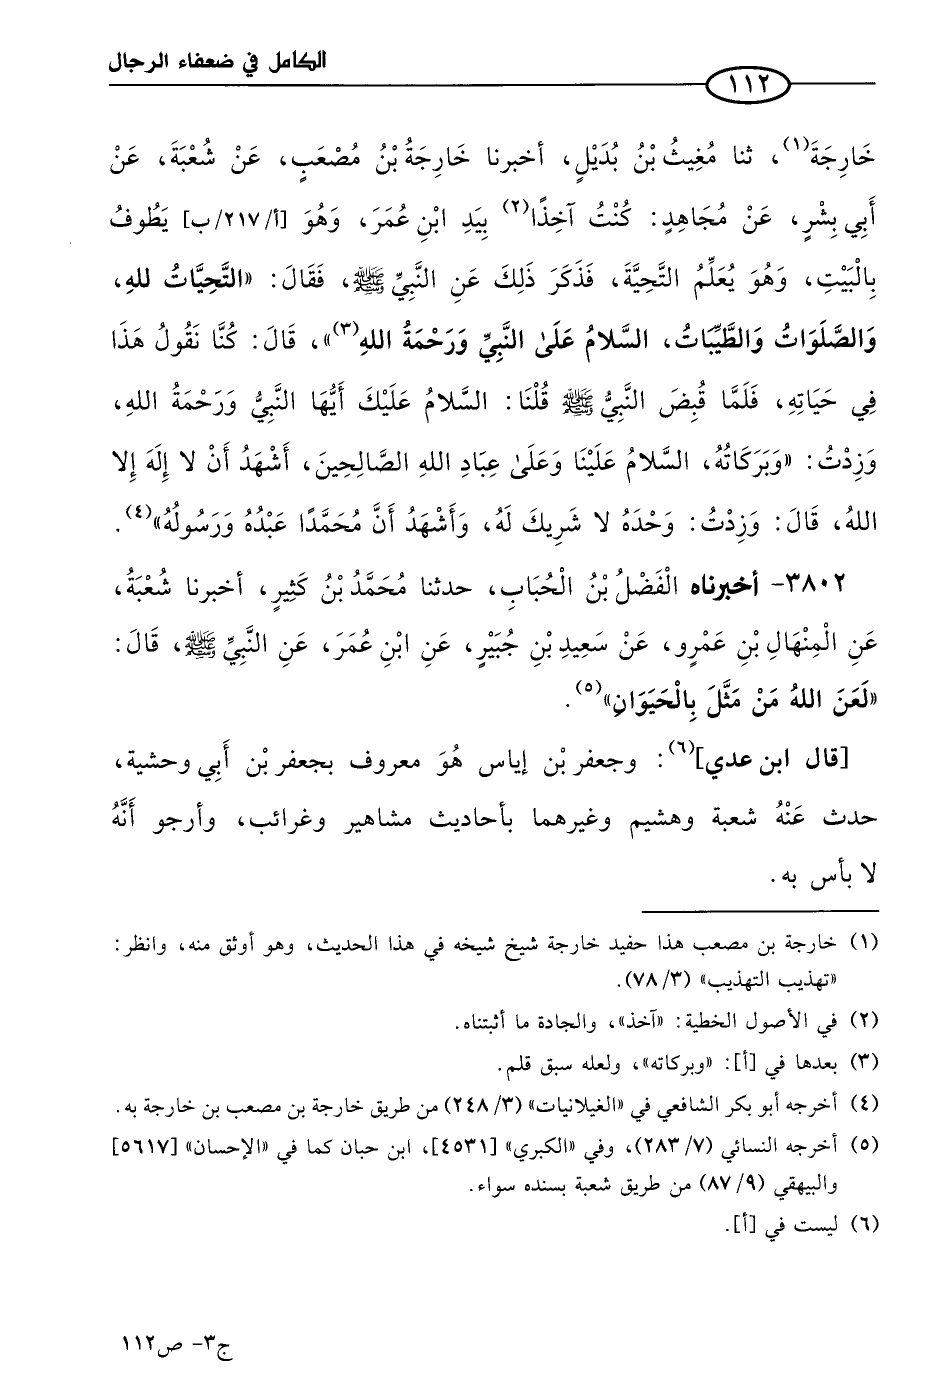 الكامل في ضعفاء الرجال
١١٢
خَارِجَةَ(١)، ثنا مُغِيثُ بْنُ بُدَيْلٍ، أخبرنا خَارِجَةُ بْنُ مُصْعَبٍ، عَنْ شُعْبَةَ، عَنْ
أَبِي بِشْرٍ، عَنْ مُجَاهِدٍ: كُنْتُ آخِذًا(٢) بِيَدِ ابْنِ عُمَرَ، وَهُوَ [أ/٢١٧/ب] يَطُوفُ
بِالْبَيْتِ، وَهُوَ يُعَلِّمُ التَّحِيَّةَ، فَذَكَرَ ذَلِكَ عَنِ النَّبِيِّ ﷺ، فَقَالَ: «التَّحِيَّاتُ للهِ،
وَالصَّلَوَاتُ وَالطَّيِّبَاتُ، السَّلامُ عَلَىٰ النَّبِيِّ وَرَحْمَةُ اللهِ(٣)»، قَالَ: كُنَّا نَقُولُ هَذَا
فِي حَيَاتِهِ، فَلَمَّا قُبِضَ النَّبِيُّ ﷺ قُلْنَا: السَّلامُ عَلَيْكَ أَيُّهَا النَّبِيُّ وَرَحْمَةُ اللهِ،
وَزِدْتُ: «وَبَرَكَاتُهُ، السَّلامُ عَلَيْنَا وَعَلَىٰ عِبَادِ اللهِ الصَّالِحِينَ، أَشْهَدُ أَنْ لا إِلَهَ إِلا
اللهُ، قَالَ: وَزِدْتُ: وَحْدَهُ لا شَرِيكَ لَهُ، وَأَشْهَدُ أَنَّ مُحَمَّدًا عَبْدُهُ وَرَسُولُهُ»(٤).
٣٨٠٢- أخبرناه الْفَضْلُ بْنُ الْحُبَابِ، حدثنا مُحَمَّدُ بْنُ كَثِيرٍ، أخبرنا شُعْبَةُ،
عَنِ الْمِنْهَالِ بْنِ عَمْرٍو، عَنْ سَعِيدِ بْنِ جُبَيْرٍ، عَنِ ابْنِ عُمَرَ، عَنِ النَّبِيِّ ﷺ، قَالَ:
«لَعَنَ اللهُ مَنْ مَثَّلَ بِالْحَيَوَانِ»(٥).
[قال ابن عدي](٦): وجعفر بْن إياس هُوَ معروف بجعفر بْن أَبِي وحشية،
حدث عَنْهُ شعبة وهشيم وغيرهما بأحاديث مشاهير وغرائب، وأرجو أَنَّهُ
لا بأس به.
(١) خارجة بن مصعب هذا حفيد خارجة شيخ شيخه في هذا الحديث، وهو أوثق منه، وانظر:
«تهذيب التهذيب» (٣/ ٧٨).
(٢) في الأصول الخطية: «آخذ»، والجادة ما أثبتناه.
(٣) بعدها في [أ]: «وبركاته»، ولعله سبق قلم.
(٤) أخرجه أبو بكر الشافعي في «الغيلانيات» (٣/ ٢٤٨) من طريق خارجة بن مصعب بن خارجة به.
(٥) أخرجه النسائي (٧/ ٢٨٣)، وفي «الكبري» [٤٥٣١]، ابن حبان كما في «الإحسان» [٥٦١٧]
والبيهقي (٩/ ٨٧) من طريق شعبة بسنده سواء.
(٦) ليست في [أ].
ج٣- ص١١٢